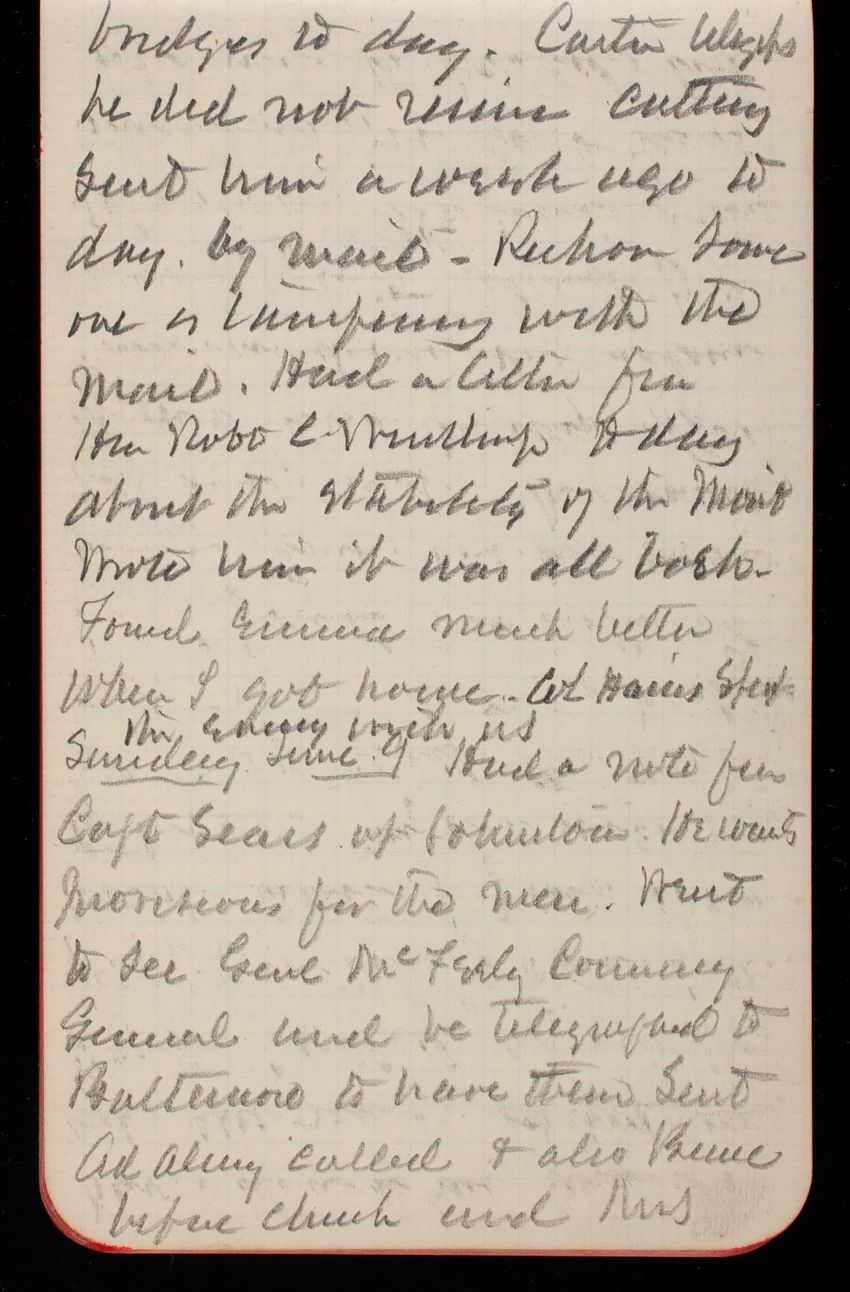 bridges to day. Carter telegphs
he did not receive cutting
sent him a week ago to
day. by mail - Reckon some
one is tampering with the
mail. Had a letter from
Hon Robt C Winthrop to day
about the stability of the Mont
Wrote him it was all bosh.
Found Emma much better
when I got home. Col Hains spent
the evening with us
Sunday June 9 Had a note from
Capt Sears of Johnstown. He wants
provisions for the men. Went
to see Genl McFeely Commsy
General and he telegraphed to
Baltimore to have them sent
Ad Alexy called & also Bene
before church and Mrs